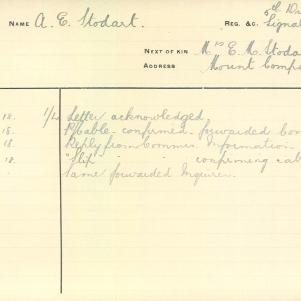 NAME A. E. Stodart. REG. &C. 6th Di
Signal
NEXT OF KIN Mrs E. M. Stoda
ADDRESS Mount Comp
18. 1/20 Letter acknowledged
18. R/Cable - confirmed - forwarded Com
18. Reply from Commis. Information
18. "Slip " " confirming cab
Same forwarded Enquirer.